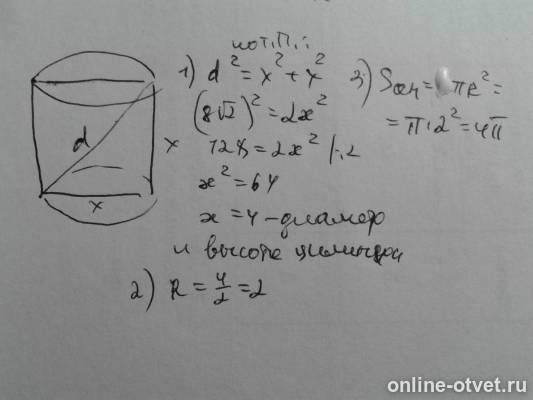 по т. П.:
1) d² = x² + x²
(8√2)² = 2x²
128 = 2x² |:2
x² = 64
x = 4 - диамер
и высота цилиндра
2) R = 4/2 = 2
3) Sосн = πR² =
= π·2² = 4π
d
x
x
online-otvet.ru